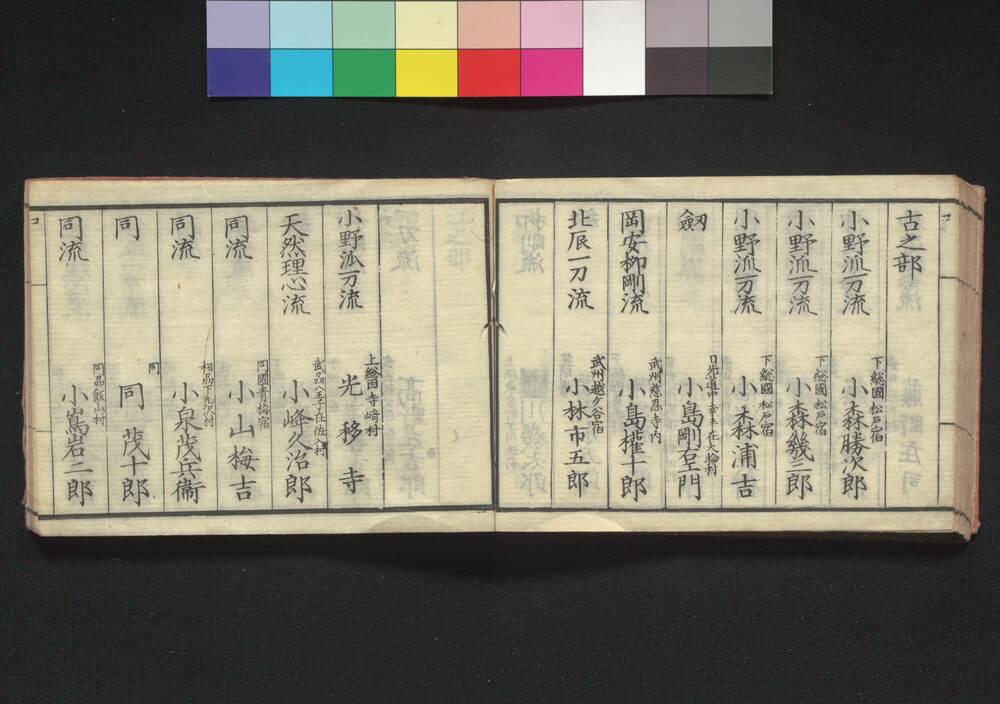 古之部
小野派一刀流
下総國 松戸宿
小森勝次郎
小野派一刀流
下総國 松戸宿
小森幾三郎
小野派一刀流
下総國 松戸宿
小森浦吉
劔
日光道中幸手在大輪村
小島剛右エ門
岡安柳剛流
武州慈恩寺内
小島權十郎
北辰一刀流
武州越ケ谷宿
小林市五郎
小野派一刀流
上総国寺﨑村
光移寺
天然理心流
武刕八王子在佐入村
小峰久治郎
同流
同國青梅宿
小山梅吉
同流
相刕下九沢村
小泉茂兵衞
同
同
同 茂十郎
同流
同刕飯山村
小嶌岩二郎